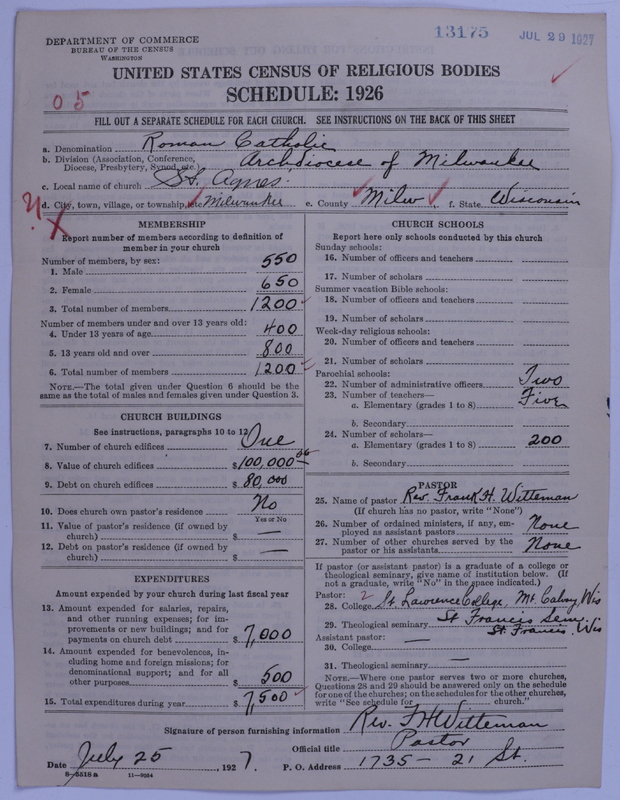 13175 JUL 29 1927
DEPARTMENT OF COMMERCE
BUREAU OF THE CENSUS
WASHINGTON
UNITED STATES CENSUS OF RELIGIOUS BODIES
SCHEDULE: 1926
0 5
FILL OUT A SEPARATE SCHEDULE FOR EACH CHURCH. SEE INSTRUCTIONS ON THE BACK OF THIS SHEET
a. Denomination Roman Catholic
b. Division (Association, Conference, Diocese, Presbytery, Synod, etc.) Archdiocese of Milwaukee
c. Local name of church St. Agnes
d. City, town, village, or township, etc. Milwaukee e. County Milw f. State Wisconsin
MEMBERSHIP
Report number of members according to definition of
member in your church
Number of members, by sex:
1. Male 550
2. Female 650
3. Total number of members 1200
Number of members under and over 13 years old:
4. Under 13 years of age 400
5. 13 years old and over 800
6. Total number of members 1200
NOTE.—The total given under Question 6 should be
the same as the total of males and females given under Question 3.
CHURCH BUILDINGS
See instructions, paragraphs 10 to 12
7. Number of church edifices One
8. Value of church edifices $100,000
9. Debt on church edifices $80,000
10. Does church own pastor's residence No
Yes or No
11. Value of pastor's residence (if owned by
church) $ —
12. Debt on pastor's residence (if owned by
church) $ —
EXPENDITURES
Amount expended by your church during last fiscal year
13. Amount expended for salaries, repairs,
and other running expenses; for im-
provements or new buildings; and for
payments on church debt $7,000
14. Amount expended for benevolences, in-
cluding home and foreign missions; for
denominational support; and for all
other purposes $ 500
15. Total expenditures during year $7,500
CHURCH SCHOOLS
Report here only schools conducted by this church
Sunday schools:
16. Number of officers and teachers
17. Number of scholars
Summer vacation Bible schools:
18. Number of officers and teachers
19. Number of scholars
Week-day religious schools:
20. Number of officers and teachers
21. Number of scholars
Parochial schools:
22. Number of administrative officers Two
23. Number of teachers—
a. Elementary (grades 1 to 8) Five
b. Secondary
24. Number of scholars—
a. Elementary (grades 1 to 8) 200
b. Secondary
PASTOR
25. Name of pastor Rev. Frank H. Witteman
(If church has no pastor, write "None")
26. Number of ordained ministers, if any, em-
ployed as assistant pastors None
27. Number of other churches served by the
pastor or his assistants None
If pastor (or assistant pastor) is a graduate of a college or
theological seminary, give name of institution below. (If
not a graduate, write "No" in the space indicated.)
Pastor: 2
28. College St Lawrence College, Mt Calvary, Wis
29. Theological seminary St Francis Sem.
St. Francis, Wis
Assistant pastor:
30. College —
31. Theological seminary —
NOTE.—Where one pastor serves two or more churches,
Questions 28 and 29 should be answered only on the schedule
for one of the churches; on the schedules for the other churches,
write "See schedule for church."
Signature of person furnishing information Rev. F H Witteman
Official title Pastor
Date July 25, 1927. P. O. Address 1735 – 21 St.
8-5518 a 11-9034